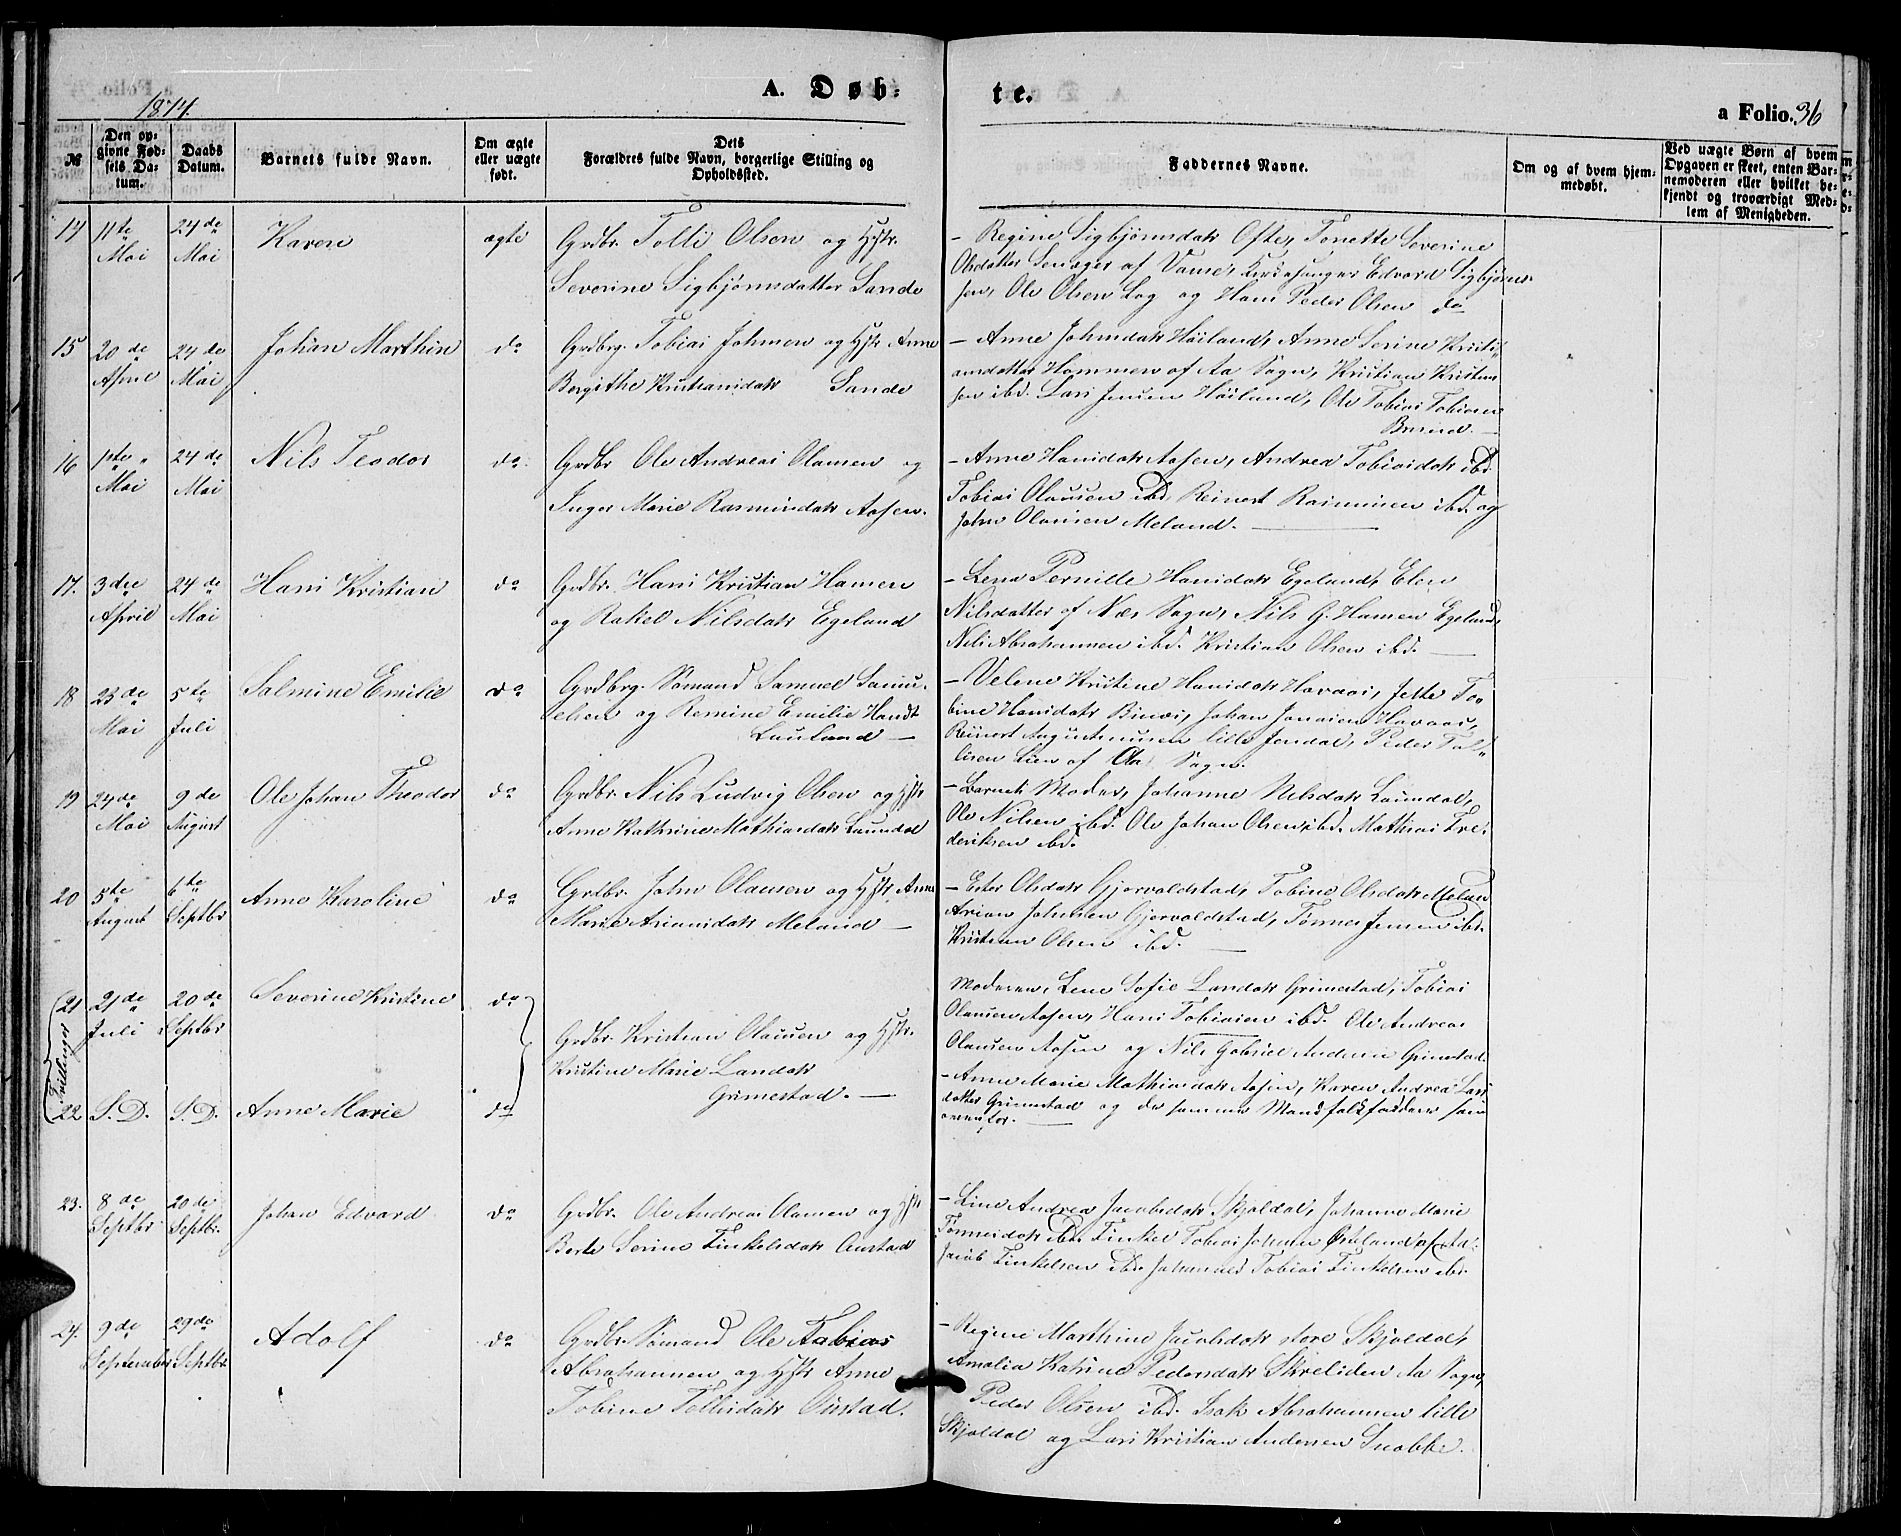 A. Døb-
te.
1874.
a Folio. 36
№
Den op-
givne Fød-
sels Da-
tum.
Daabs
Datum.
Barnets fulde Navn.
Om ægte
eller uægte
født.
Dets
Forældres fulde Navn, borgerlige Stilling og
Opholdssted.
Faddernes Navne.
Om og af hvem hjem-
medøbt.
Ved uægte Børn af hvem
Opgaven er skeet, enten Bar-
nemoderen eller hvilket be-
kjendt og troværdigt Med-
lem af Menigheden.
14 11te 24de Karen ægte Grdbr. Tolli Olsen og Hstr.
Mai Mai Severine Sigbjørnsdatter Sande
- Regine Sigbjørnsdatr Ofte, Tonette Severine
Olsdatter af Vanse, Kirkesanger Edvard Sigbjørn-
sen, Ole Olsen Log og Hans Peder Olsen do
15 20de 24de Johan Marthin do Grdbrg. Tobias Johnsen og Hstr Anne
April Mai Bergithe Kristiansdatr Sande
- Anne Johnsdatr Høiland, Anne Serine Kristi-
ansdatter Hommen af Aa Sogn, Kristian Kristen
sen ibd. Lars Jensen Høiland, Ole Tobias Tobiasen
16 1ste 24de Nils Teodor do Grdbr Ole Andreas Olausen og
Mai Mai Inger Marie Rasmusdatr Aasen.
- Anne Hansdatr Aasen, Andrea Tobiasdatr ibd.
Tobias Olausen ibd. Reinert Rasmusen ibd. og
John Olausen Meland.
17. 3die 24de Hans Kristian do Grdbr. Hans Kristian Hansen
April Mai og Rakel Nilsdatr Egeland
- Lena Pernille Hansdatr Egeland, Elen
Nilsdatter af Næs Sogn, Nils G. Hansen Egeland,
Nils Abrahamsen ibd. Kristian Olsen ibd.
18 23de 5te Salmine Emilie do Grdbrg. Sømand Samuel Samu-
Mai Juli elsen og Remine Emilie Handt
Lauland
- Velene Kristine Hansdatr Havaas, Jette To-
bine Hansdatr Johan Jonasen Havaas,
Reinert Augustinusen lille Jendal, Peder Tol-
lisen Lien af Aa Sogn.
19 24de 9de Ole Johan Theodor do Grdbr. Nils Ludvig Olsen og Hstr
Mai August Anne Kathrine Mathiasdatr Laundal
- Barnets Moder, Johanne Nilsdatr Laundal,
Ole Nilsen ibd. Ole Johan Olsen ibd. Mathias Fre-
deriksen ibd.
20 5te 6te Anne Karoline do Grdbr. John Olausen og Hstr. Anne
August Septbr Marie Ariansdatr Meland
- Ester Olsdatr Gjervoldstad, Tobine Olsdatr Melan
Arian Johnsen Gjervoldstad, Tønnes Jensen ibd.
Kristian Olsen ibd.
21 21de 20de Severine Kristine do
Juli Septbr
Tvillinger
Grdbr. Kristian Olausen og Hstr.
Kristine Marie Larsdatr
Grimestad.
Moderen, Lene Sofie Larsdatr Grimestad, Tobias
Olausen Aasen, Hans Tobiasen ibd. Ole Andreas
Olausen Aasen og Nils Gabriel Andersen Grimestad.
22 S.D. S.D. Anne Marie do
- Anne Marie Mathiasdatr Aasen, Karen Andrea Lars
datter Grimestad og de samme Mandfolkfaddere som
ovenfor.
23. 8de 20de Johan Edvard do Grdbr. Ole Andreas Olausen og Hstr
Septbr Septbr. Berte Serine Finkelsdatr Oustad
- Line Andrea Jacobsdatr Skjoldal, Johanne Marie
Tønnesdatr ibd. Finkel Tobias Johnsen Østeland af Aa.
Jacob Finkelsen ibd. Johannes Tobias Finkelsen ibd.
24. 9de 29de Adolf do Grdbr. Sømand Ole Tobias
September Septbr. Abrahamsen og Hstr Anne
Tobine Tollisdatr Oustad.
- Regine Marthine Jacobsdatr store Skjoldal,
Amalia Katrine Pedersdatr Skreliden Aa Sogn,
Peder Olsen ibd. Isak Abrahamsen lille
Skjoldal og Lars Kristian Andersen Snobbe.